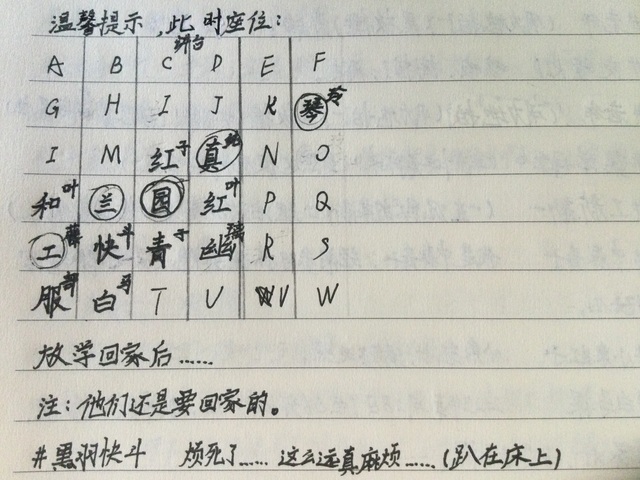 温馨提示,此时座位:
讲台
A B C D E F
G H I J K 琴苓
I M 红子 真纯 N O
和叶 兰 园 红叶 P Q
工藤 快斗 青子 幽瑞 R S
服部 白马 T U V W
放学回家后……
注:他们还是要回家的。
#黑羽快斗 烦死了……这么远真麻烦……(趴在床上)